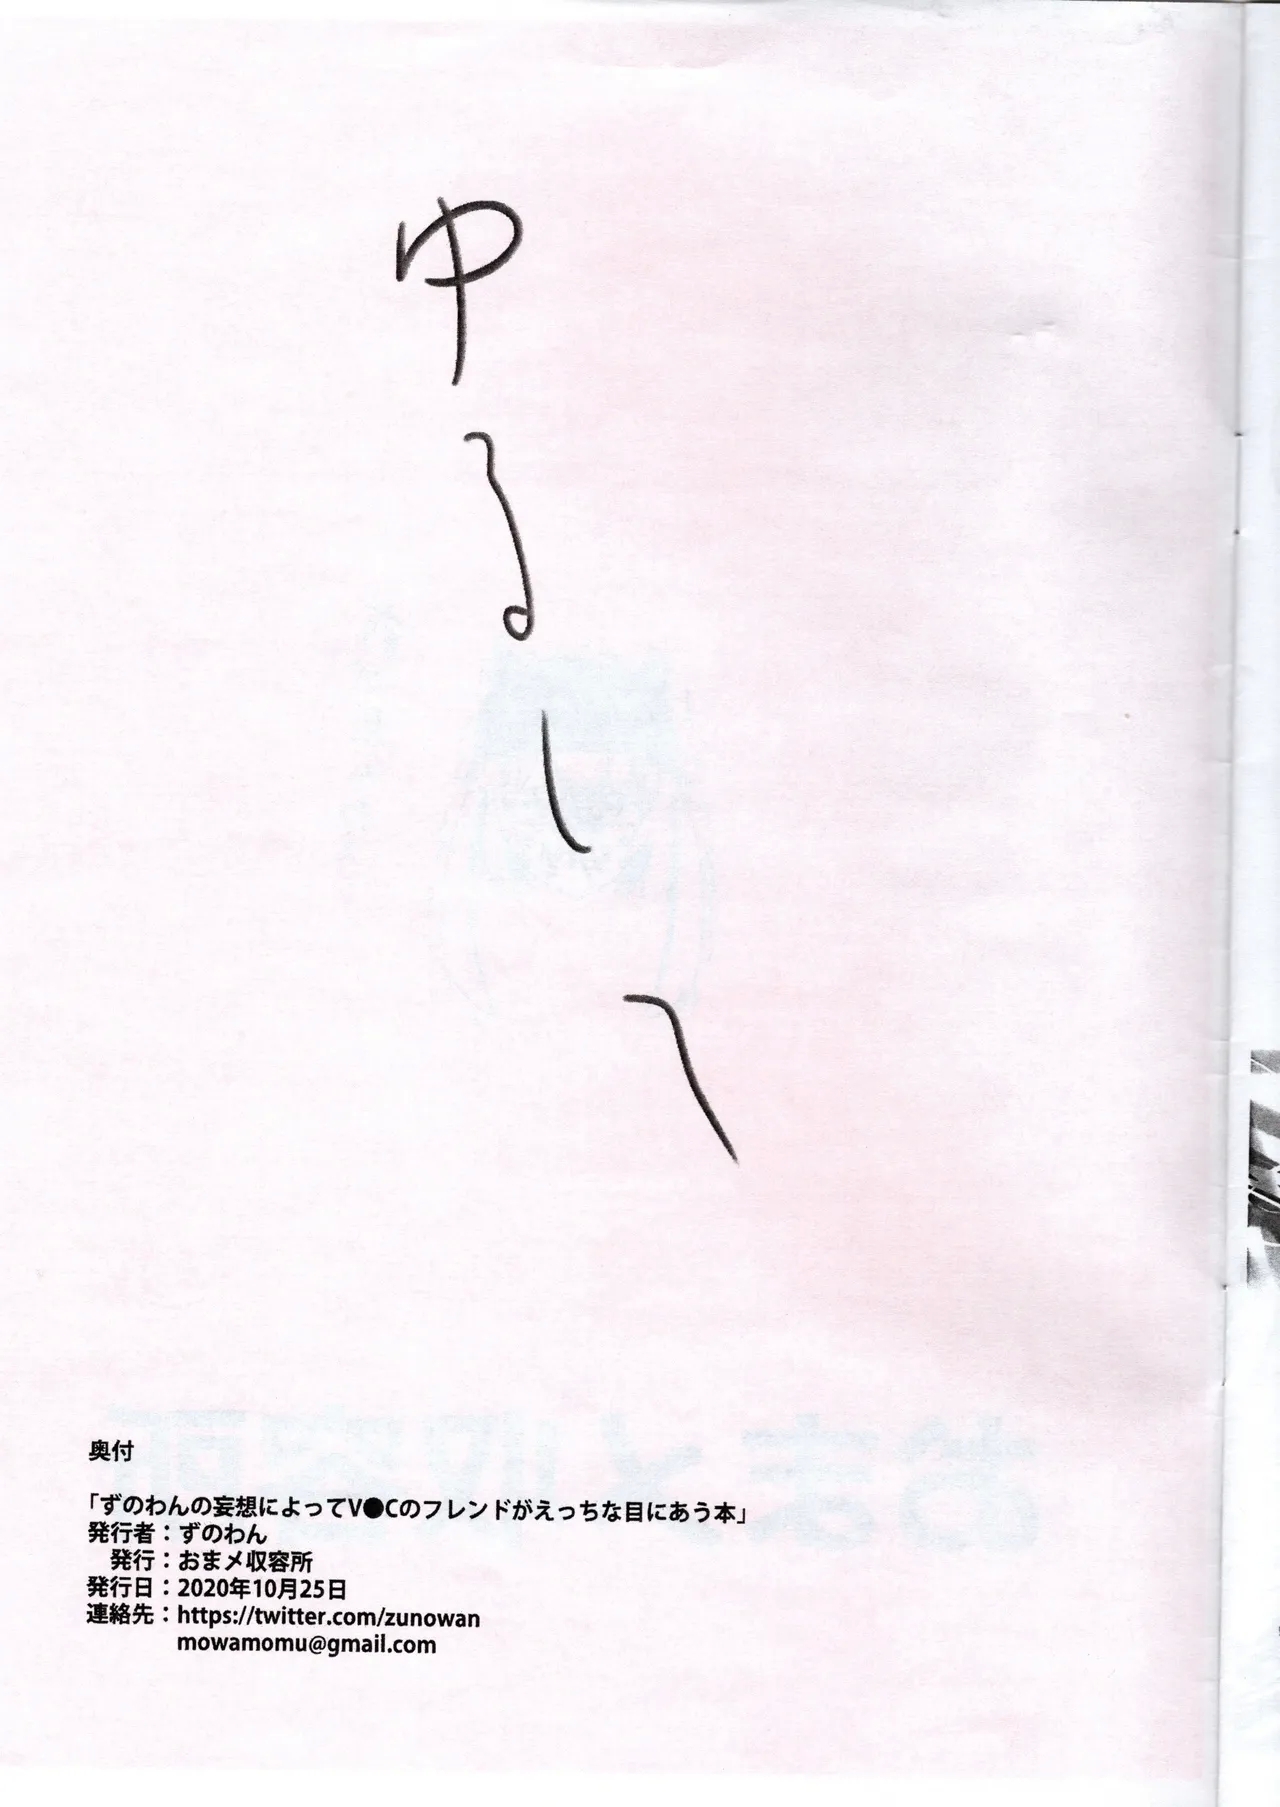 ゆるして
奥付
「ずのわんの妄想によってV●Cのフレンドがえっちな目にあう本」
発行者：ずのわん
発行：おまメ収容所
発行日：2020年10月25日
連絡先：https://twitter.com/zunowan
mowamomu@gmail.com